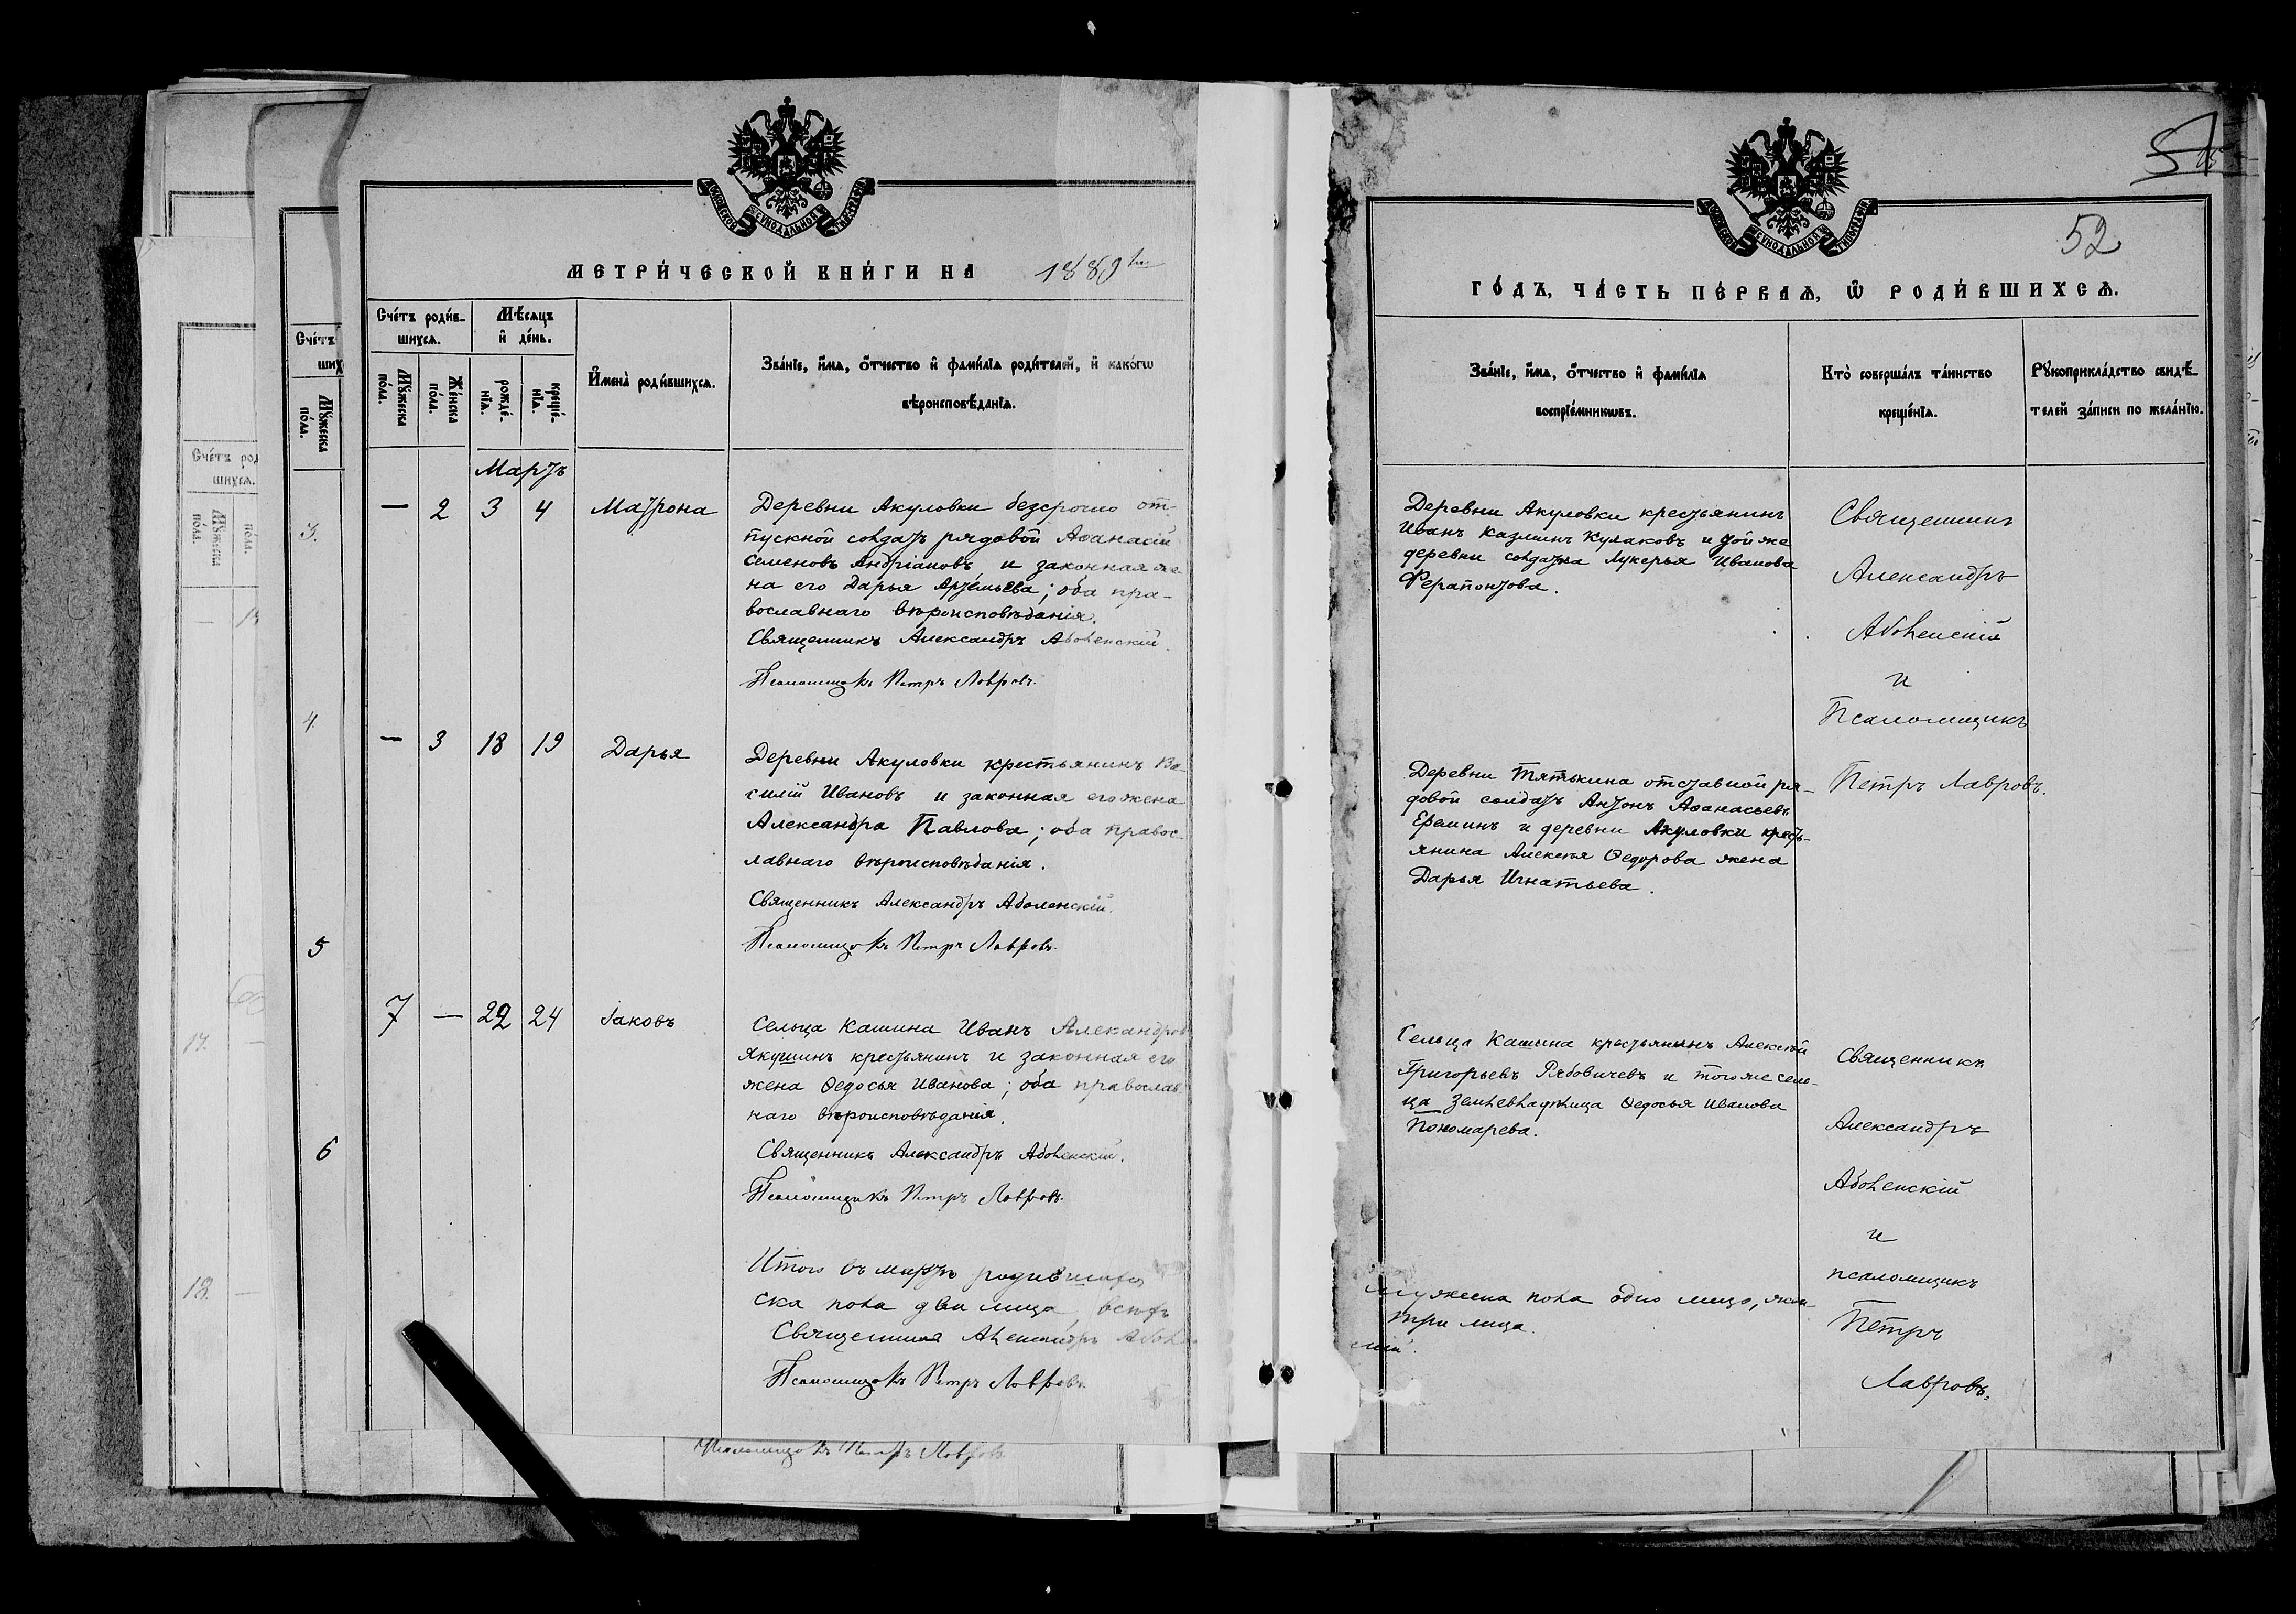 МОСКОВСКОЙ СѴНОДАЛЬНОЙ ТИПОГРАФІИ
МЕТРИ́ЧЕСКОЙ КНИ́ГИ НА 1889
Сче́тъ роди́в-
шихсѧ.
Мꙋ́жеска
по́ла.
Же́нска
по́ла.
Мѣ́сѧцъ
и҆ де́нь.
рожде́-
нїѧ.
креще́-
нїѧ.
И҆мена̀ роди́вшихсѧ.
Зва́нїе, и҆́мѧ, ѻ҆́тчество и҆ фами́лїѧ роди́телей, и҆ како́гѡ
вѣроисповѣ́данїѧ.
Мартъ
— 2 3 4 Матрона
Деревни Акуловки безсрочно от-
пускной солдатъ рядовой Аѳанасій
Семеновъ Андріановъ и законная же
на его Дарья Артемьева; оба пра-
вославнаго вѣроисповѣданія.
Священникъ Александръ Аболенскій.
Псаломщикъ Петръ Лавровъ.
— 3 18 19 Дарья
Деревни Акуловки крестьянинъ Ва-
силій Ивановъ и законная его жена
Александра Павлова; оба правос-
лавнаго вѣроисповѣданія.
Священникъ Александръ Аболенскій.
Псаломщикъ Петръ Лавровъ.
7 — 22 24 Іаковъ
Сельца Кашина Иванъ Александров
Якушинъ крестьянинъ и законная его
жена Ѳедосья Иванова; оба православ
наго вѣроисповѣданія.
Священникъ Александръ Аболенскій.
Псаломщикъ Петръ Лавровъ.
Итого въ мартѣ родившихся
ска пола два лица всѣхъ
Священникъ Александръ Абол
Псаломщикъ Петръ Лавровъ.
Псаломщикъ Петръ Лавровъ
Сче́тъ
ших
Мꙋ́жеска
по́ла.
3.
4.
5
6
Сче́тъ род
шихсѧ.
Мꙋ́жеска
по́ла.
17.
18.
МОСКОВСКОЙ СѴНОДАЛЬНОЙ ТИПОГРАФІИ
52
ГО́ДЪ, ЧА́СТЬ ПЕ́РВАѦ, Ѡ҆ РОДИ́ВШИХСѦ.
Зва́нїе, и҆́мѧ, ѻ҆́тчество и҆ фами́лїѧ
воспрїе́мникѡвъ.
Кто̀ соверша́лъ та́инство
креще́нїѧ.
Рꙋкоприкла́дство свидѣ́-
телей за́писи по жела́нїю.
Деревни Акуловки крестьянинъ
Иванъ Казминъ Кулаковъ и той же
деревни солдатка Лукерья Иванова
Ферапонтова.
Священникъ
Александръ
Аболенскій
и
Псаломщикъ
Петръ Лавровъ.
Деревни Тятькина отставной ря-
довой солдатъ Антонъ Аѳанасьевъ
Ереминъ и деревни Акуловки кресть-
янина Алексѣя Ѳедорова жена
Дарья Игнатьева.
Сельца Кашина крестьянинъ Алексѣй
Григорьевъ Рябовичевъ и того же сель-
ца землевладѣлица Ѳедосья Иванова
Пономарева.
Священникъ
Александръ
Аболенскій
и
псаломщикъ
Петръ
Лавровъ.
мужеска пола одно лицо, жен-
три лица.
скій.